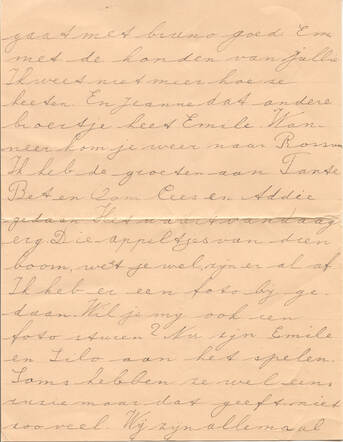 gaat met bruno goed Em
met de honden van Jullie
Ik weet niet meer hoe ze
heeten. En Jeanne dat andere
broertje heet Emile. Wan-
neer kom je weer naar Rossum
Ik heb de groeten aan Tante
Bet en Oom Cees en Addie
gedaan Het waait vandaag
erg. Die appeltjes van dien
boom, weet je wel, zijn er al af
Ik heb er een foto by ge-
daan. Wil je my ook een
foto sturen? Nu zijn Emile
en Tilo aan het spelen.
Soms hebben ze wel eens
ruzie maar dat geeft niet
zooveel Wij zyn allemaal